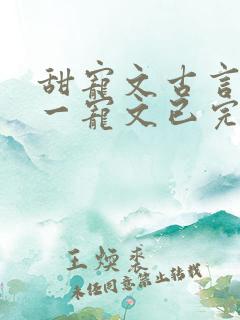 甜宠文古言
一宠文已完
王煐裘
未经同意禁止转载